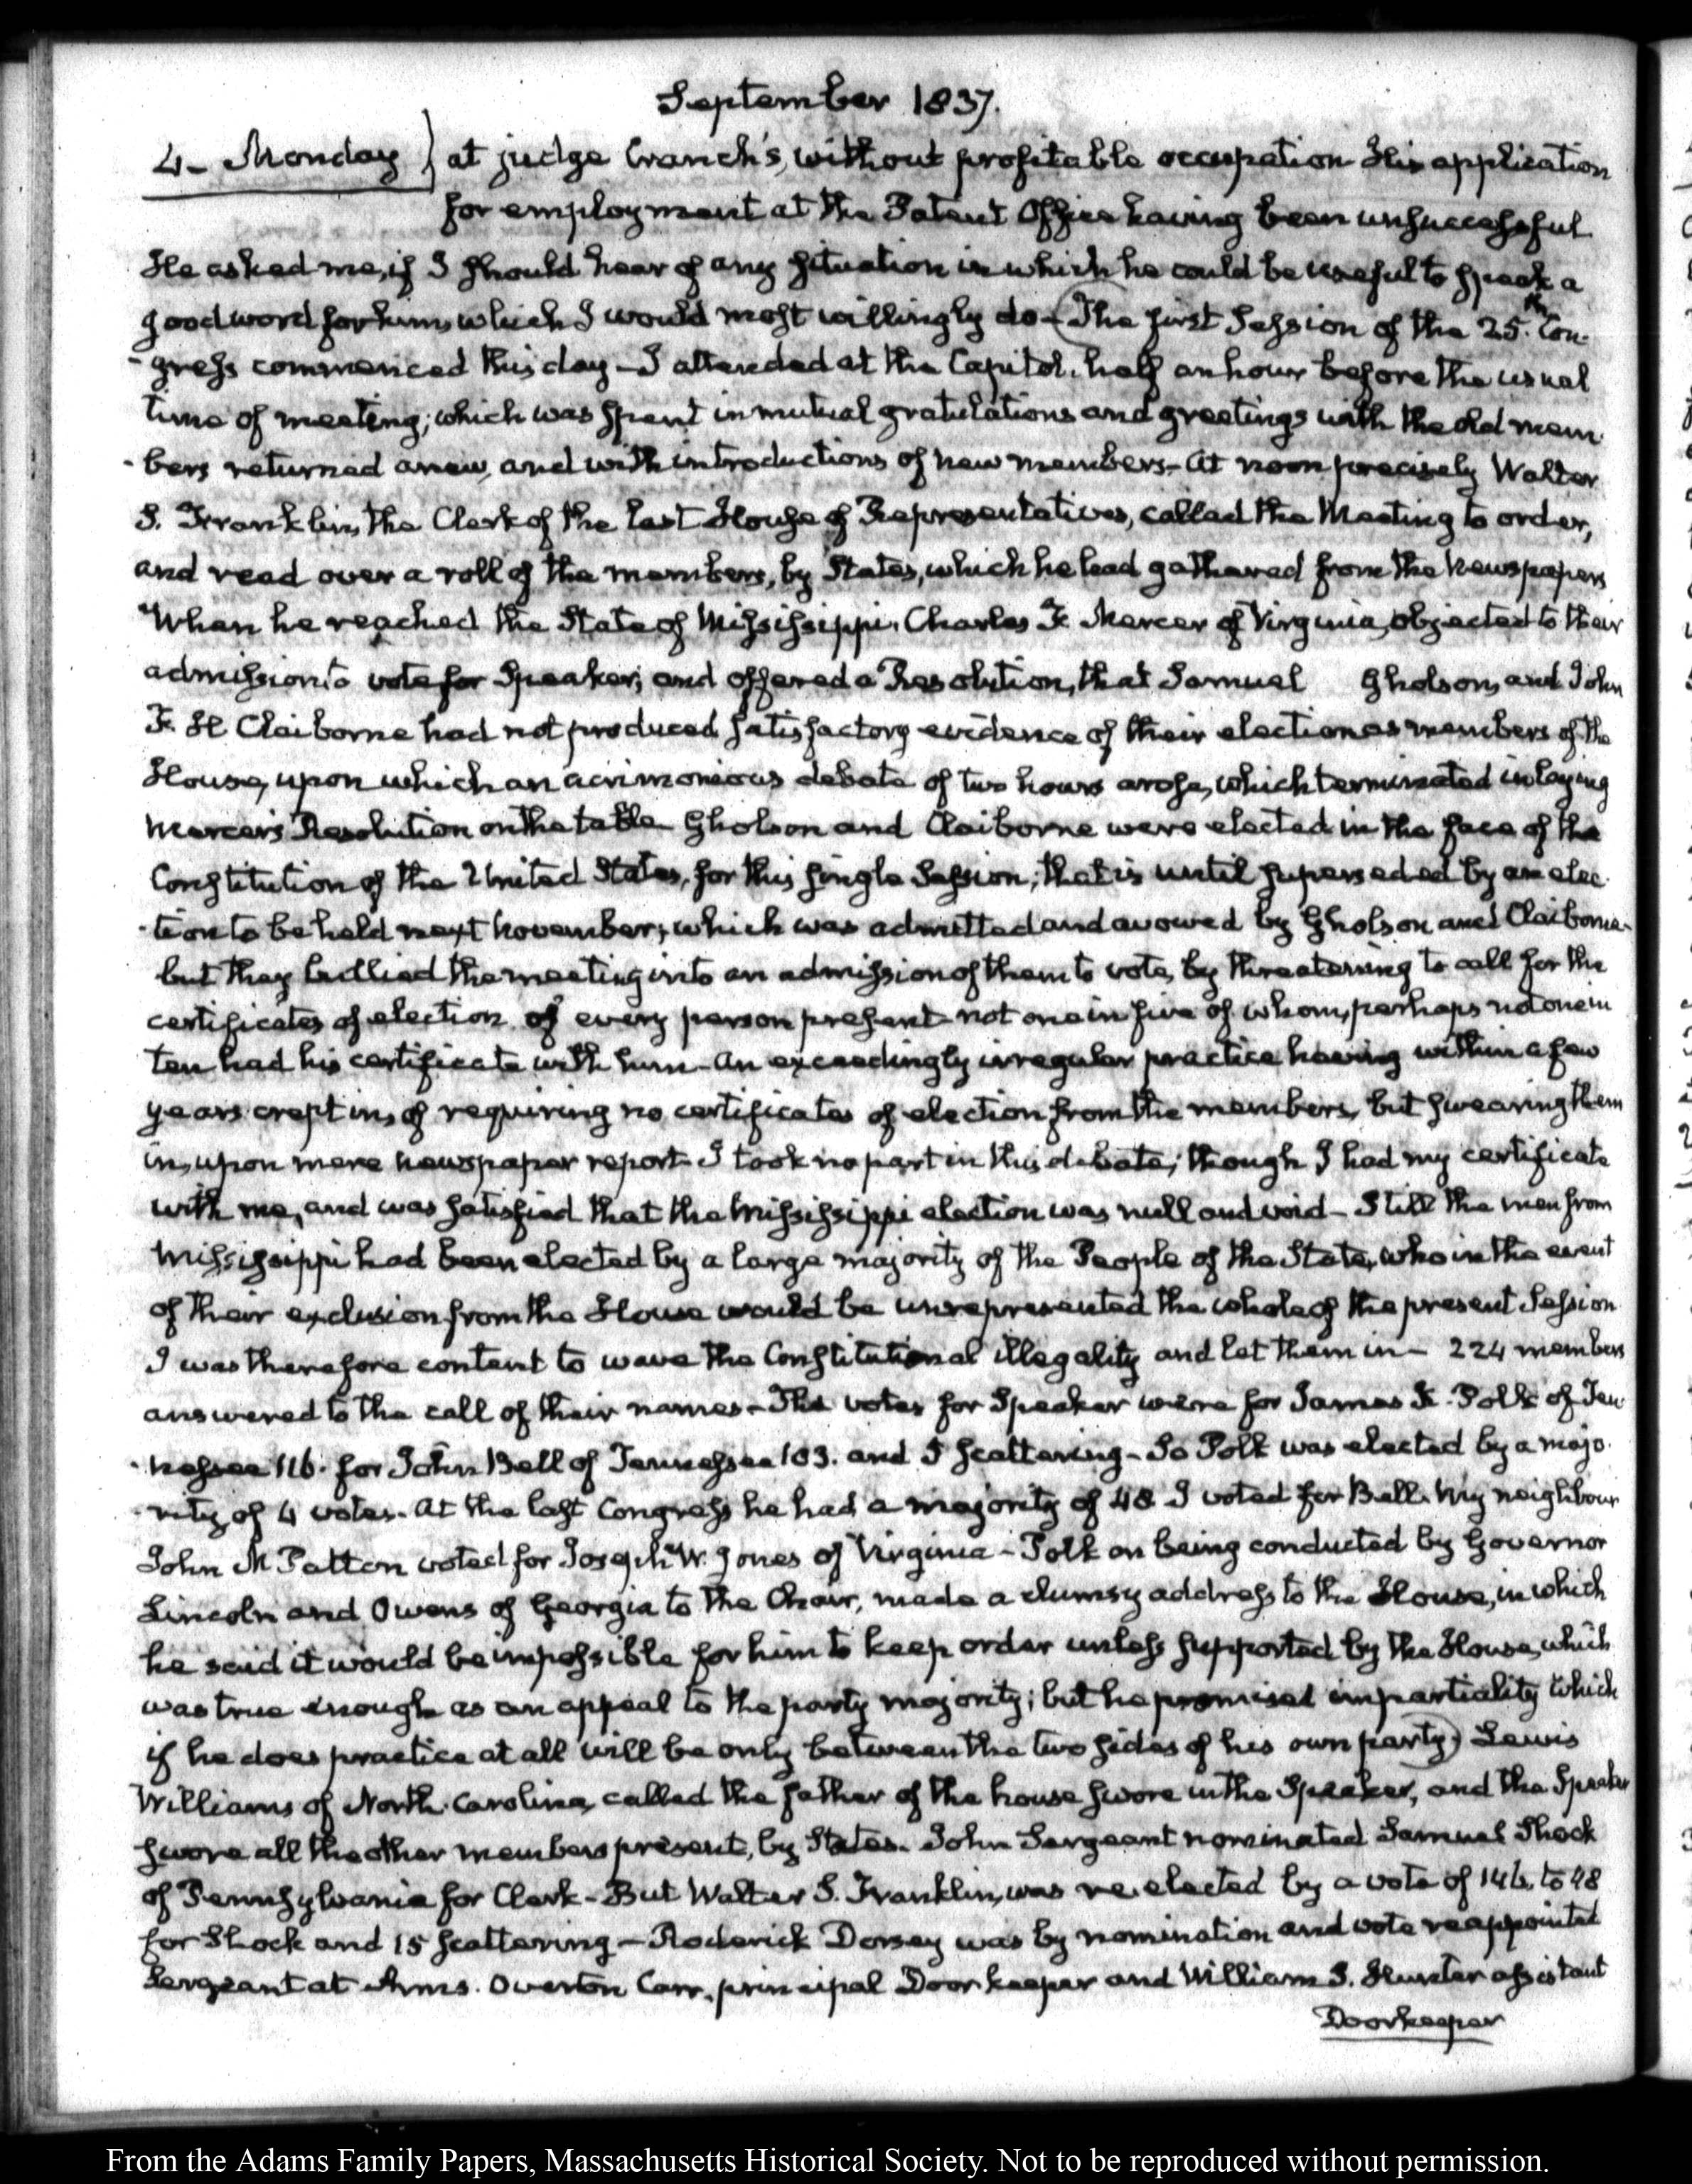 September 1837.
4 - Monday } at judge Cranch's, without profitable occupation His application
for employment at the Patent Office having been unsuccessful
He asked me, if I should hear of any situation in which he could be useful to speak a
good word for him, which I would most willingly do - The first Session of the 25.th Con-
-gress commenced this day - I attended at the Capitol, half an hour before the usual
time of meeting; which was spent in mutual gratulations and greetings with the old mem-
-bers returned anew, and with introductions of new members - At noon precisely Walter
S. Franklin, the Clerk of the last House of Representatives, called the Meeting to order,
and read over a roll of the members, by States, which he had gathered from the Newspapers
When he reached the State of Mississippi, Charles F. Mercer of Virginia, objected to their
admission to vote for Speaker; and offered a Resolution, that Samuel Gholson, and John
F. H Claiborne had not produced satisfactory evidence of their election as members of the
House, upon which an acrimonious debate of two hours arose, which terminated in laying
Mercer's Resolution on the table Gholson and Claiborne were elected in the face of the
Constitution of the United States, for this single Session; that is until superseded by an elec-
-tion to be held next November; which was admitted and avowed by Gholson and Claiborne -
but they bullied the meeting into an admission of them to vote, by threatening to call for the
certificates of election of every person present - not one in five of whom, perhaps not one in
ten had his certificate with him - An exceedingly irregular practice having within a few
years crept in, of requiring no certificates of election from the members, but swearing them
in, upon mere newspaper report - I took no part in this debate; though I had my certificate
with me, and was satisfied that the Mississippi election was null and void - Still the men from
Mississippi had been elected by a large majority of the People of the State, who in the event
of their exclusion from the House would be unrepresented the whole of the present Session
I was therefore content to wave the Constitutional illegality and let them in - 224 members
answered to the call of their names - The votes for Speaker were for James K. Polk of Ten-
-nessee 116. for John Bell of Tennessee 103. and 5 scattering - So Polk was elected by a majo-
-rity of 4 votes - At the last Congress he had a majority of 48 I voted for Bell. My neighbour
John M Patton voted for Joseph W. Jones of Virginia - Polk on being conducted by Governor
Lincoln and Owens of Georgia to the Chair, made a clumsy address to the House, in which
he said it would be impossible for him to keep order unless supported by the House, which
was true enough as an appeal to the party majority; but he promised impartiality which
if he does practice at all will be only between the two sides of his own party) Lewis
Williams of North-Carolina, called the father of the house swore in the Speaker, and the Speaker
swore all the other members present, by States. John Sergeant nominated Samuel Shock
of Pennsylvania for Clerk - But Walter S. Franklin, was re-elected by a vote of 146, to 48
for Shock and 15 scattering - Roderick Dorsey was by nomination and vote reappointed
Sergeant at Arms. Overton Carr, principal Door keeper and William S. Hunter assistant
Doorkeeper
From the Adams Family Papers, Massachusetts Historical Society. Not to be reproduced without permission.